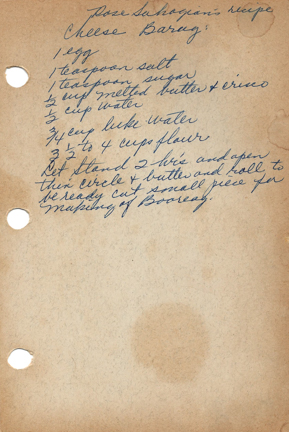 Rose Sahagian's recipe
Cheese Barag:
1 egg
1 teaspoon salt
1 teaspoon sugar
½ cup melted butter & crisco
½ cup water
¾ cup luke water
3 ½ to 4 cups flour
Let stand 2 hr's and open
thin circle & butter and roll to
be ready cut small piece for
making of Booreag.